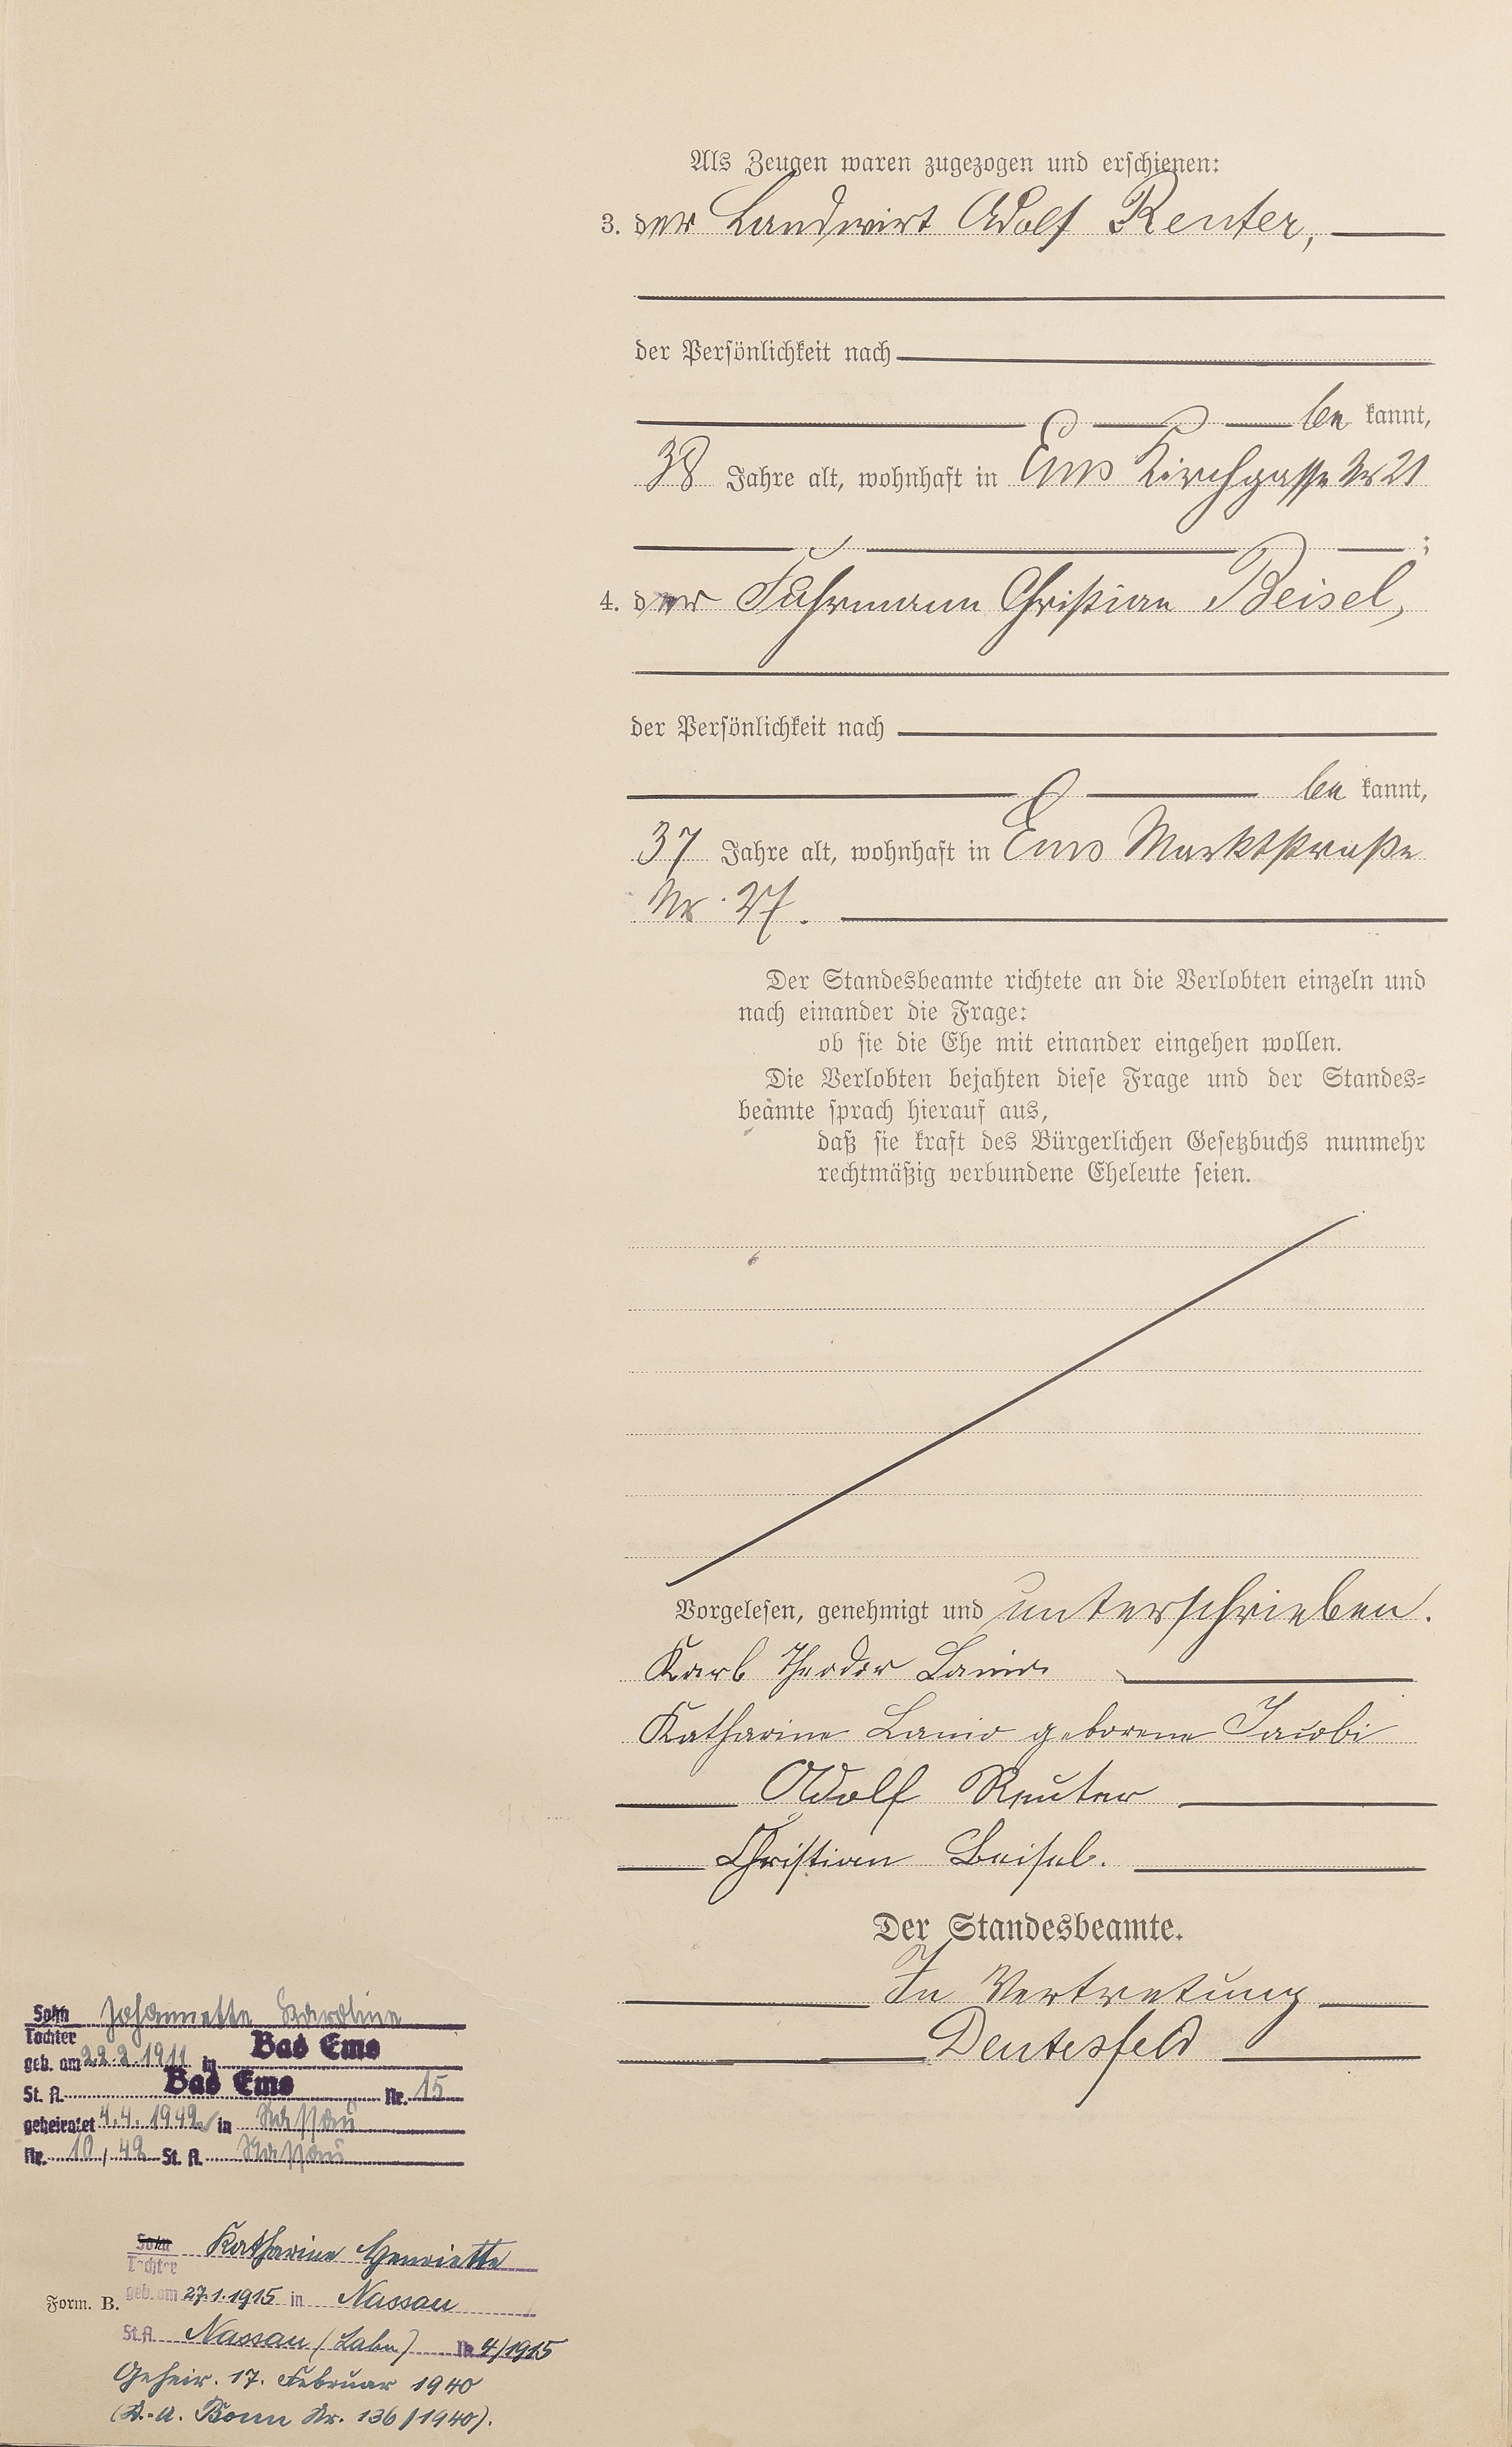 Als Zeugen waren zugezogen und erschienen:
3. der Landwirt Adolf Reuter,
der Persönlichkeit nach
be kannt,
38 Jahre alt, wohnhaft in Ems Kirchgasse Nr 21
;
4. der Fuhrmann Christian Beisel,
der Persönlichkeit nach
be kannt,
37 Jahre alt, wohnhaft in Ems Marktstraße
Nr. 27.
Der Standesbeamte richtete an die Verlobten einzeln und
nach einander die Frage:
ob sie die Ehe mit einander eingehen wollen.
Die Verlobten bejahten diese Frage und der Standes-
beamte sprach hierauf aus,
daß sie kraft des Bürgerlichen Gesetzbuchs nunmehr
rechtmäßig verbundene Eheleute seien.
Vorgelesen, genehmigt und unterschrieben.
Karl Theodor
Katharine geborene Jacobi
Adolf Reuter
Christian Beisel.
Der Standesbeamte.
In Vertretung
Sohn Johannette Karoline
Tochter
geb. am 22.2.1911 in Bad Ems
St. A. Bad Ems Nr. 15
geheiratet 4.4.1942 in Nassau
Nr. 10/42 St. A. Nassau
Sohn Katharine Henriette
Tochter
Form. B. geb. am 27.1.1915 in Nassau
St.A. Nassau (Lahn) Nr. 4/1915
Geheir. 17. Februar 1940
(St.-A. Bonn Nr. 136/1940).